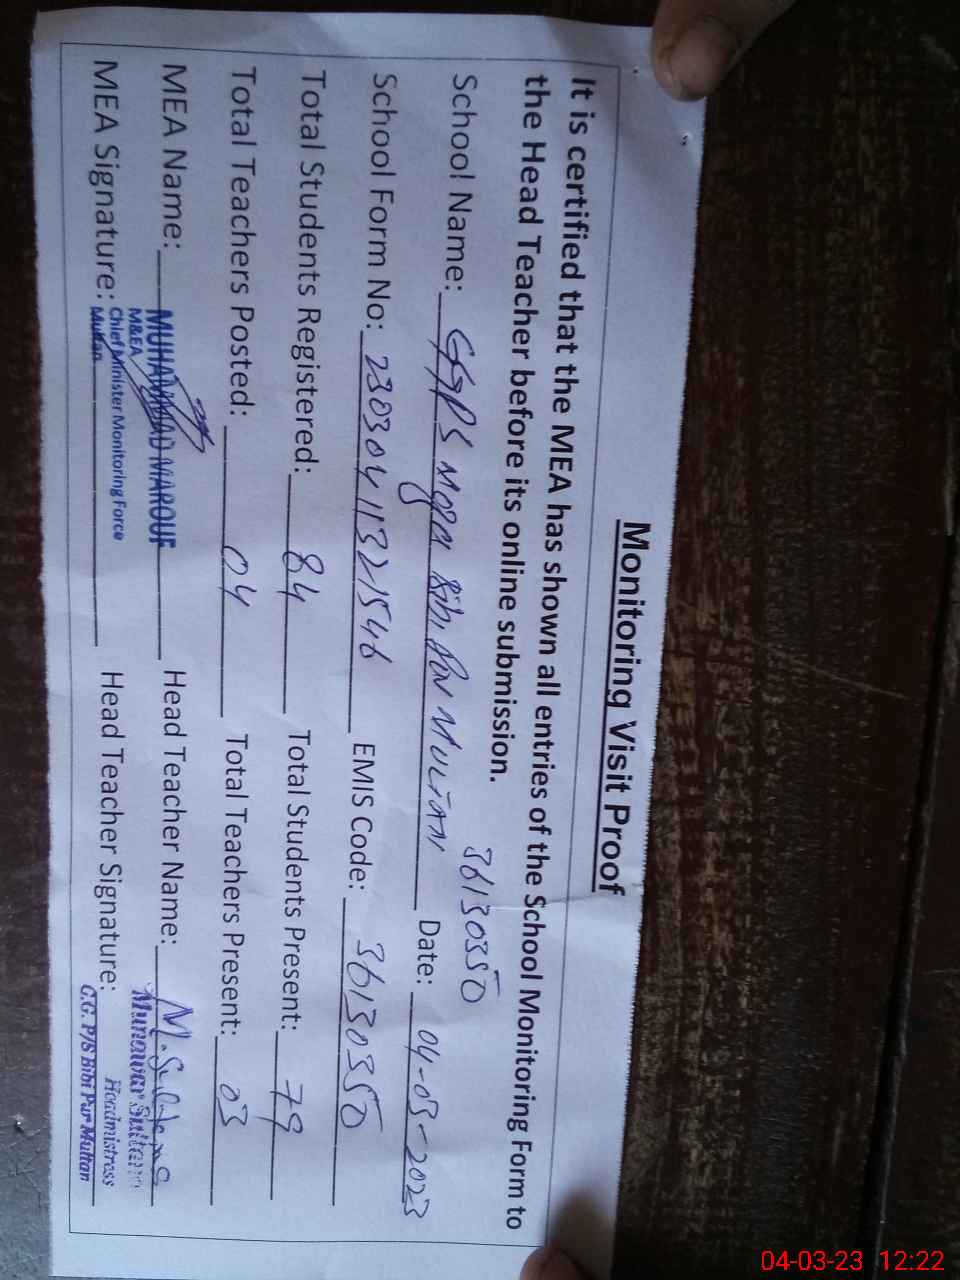 Monitoring Visit Proof
It is certified that the MEA has shown all entries of the School Monitoring Form to
the Head Teacher before its online submission.
36130350
School Name: GGPS Bibi Pur MULTAN Date: 04-03-2023
School Form No: 23030411321546 EMIS Code: 36130350
Total Students Registered: 84 Total Students Present: 79
Total Teachers Posted: 04 Total Teachers Present: 03
MEA Name: MUHAMMAD MAROUF Head Teacher Name: M. Sultana
M&EA
Chief Minister Monitoring Force
Multan
Munawar Sultana
Headmistress
G.G. P/S Bibi Pur Multan
MEA Signature: Head Teacher Signature:
04-03-23 12:22